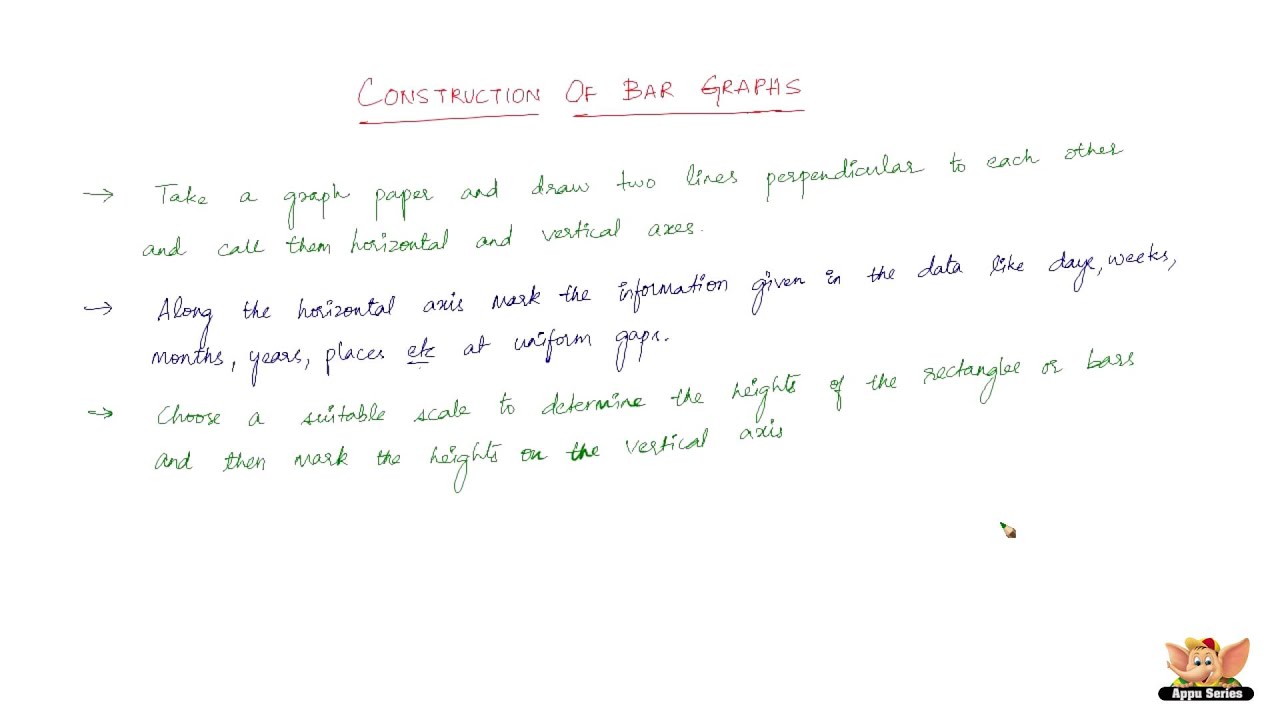 CONSTRUCTION OF BAR GRAPHS
→ Take a graph paper and draw two lines perpendicular to each other
and call them horizontal and vertical axes.
→ Along the horizontal axis mark the information given in the data like days, weeks,
months, years, places etc at uniform gaps.
→ Choose a suitable scale to determine the heights of the rectangles or bars
and then mark the heights on the vertical axis
Appu Series